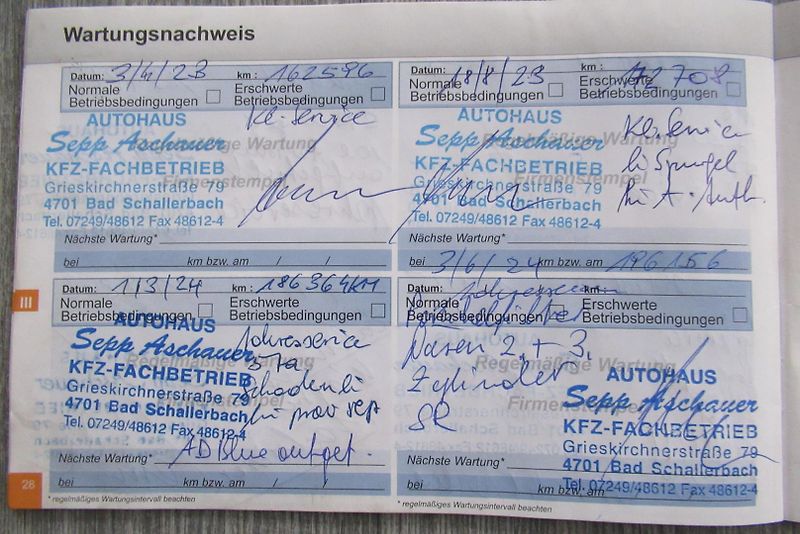 Wartungsnachweis
Datum: 3/4/23 km: 162596
Normale Betriebsbedingungen
Erschwerte Betriebsbedingungen
Kl. Service
Regelmäßige Wartung
Firmenstempel
AUTOHAUS
Sepp Aschauer
KFZ-FACHBETRIEB
Grieskirchnerstraße 79
4701 Bad Schallerbach
Tel. 07249/48612 Fax 48612-4
Nächste Wartung*
bei km bzw. am / /
Datum: 18/8/23 172708
Normale Betriebsbedingungen
Erschwerte Betriebsbedingungen
Kl. Service
li Spiegel
Regelmäßige Wartung
Firmenstempel
AUTOHAUS
Sepp Aschauer
KFZ-FACHBETRIEB
Grieskirchnerstraße 79
4701 Bad Schallerbach
Tel. 07249/48612 Fax 48612-4
Nächste Wartung*
bei km bzw. am
Datum: 1/3/24 km: 186364KM
Normale Betriebsbedingungen
Erschwerte Betriebsbedingungen
Jahresservice
Regelmäßige Wartung
AUTOHAUS
Sepp Aschauer
KFZ-FACHBETRIEB
Grieskirchnerstraße 79
4701 Bad Schallerbach
Tel. 07249/48612 Fax 48612-4
AD Blue aufgef.
Nächste Wartung*
bei km bzw. am / /
3/6/24 196156
Normale Betriebsbedingungen
Erschwerte Betriebsbedingungen
Düsen 2. + 3.
Zylinder
SR
Regelmäßige Wartung
Firmenstempel
AUTOHAUS
Sepp Aschauer
KFZ-FACHBETRIEB
Grieskirchnerstraße 79
4701 Bad Schallerbach
Tel. 07249/48612 Fax 48612-4
Nächste Wartung*
bei km bzw. am
* regelmäßiges Wartungsintervall beachten
* regelmäßiges Wartungsintervall beachten
III
28